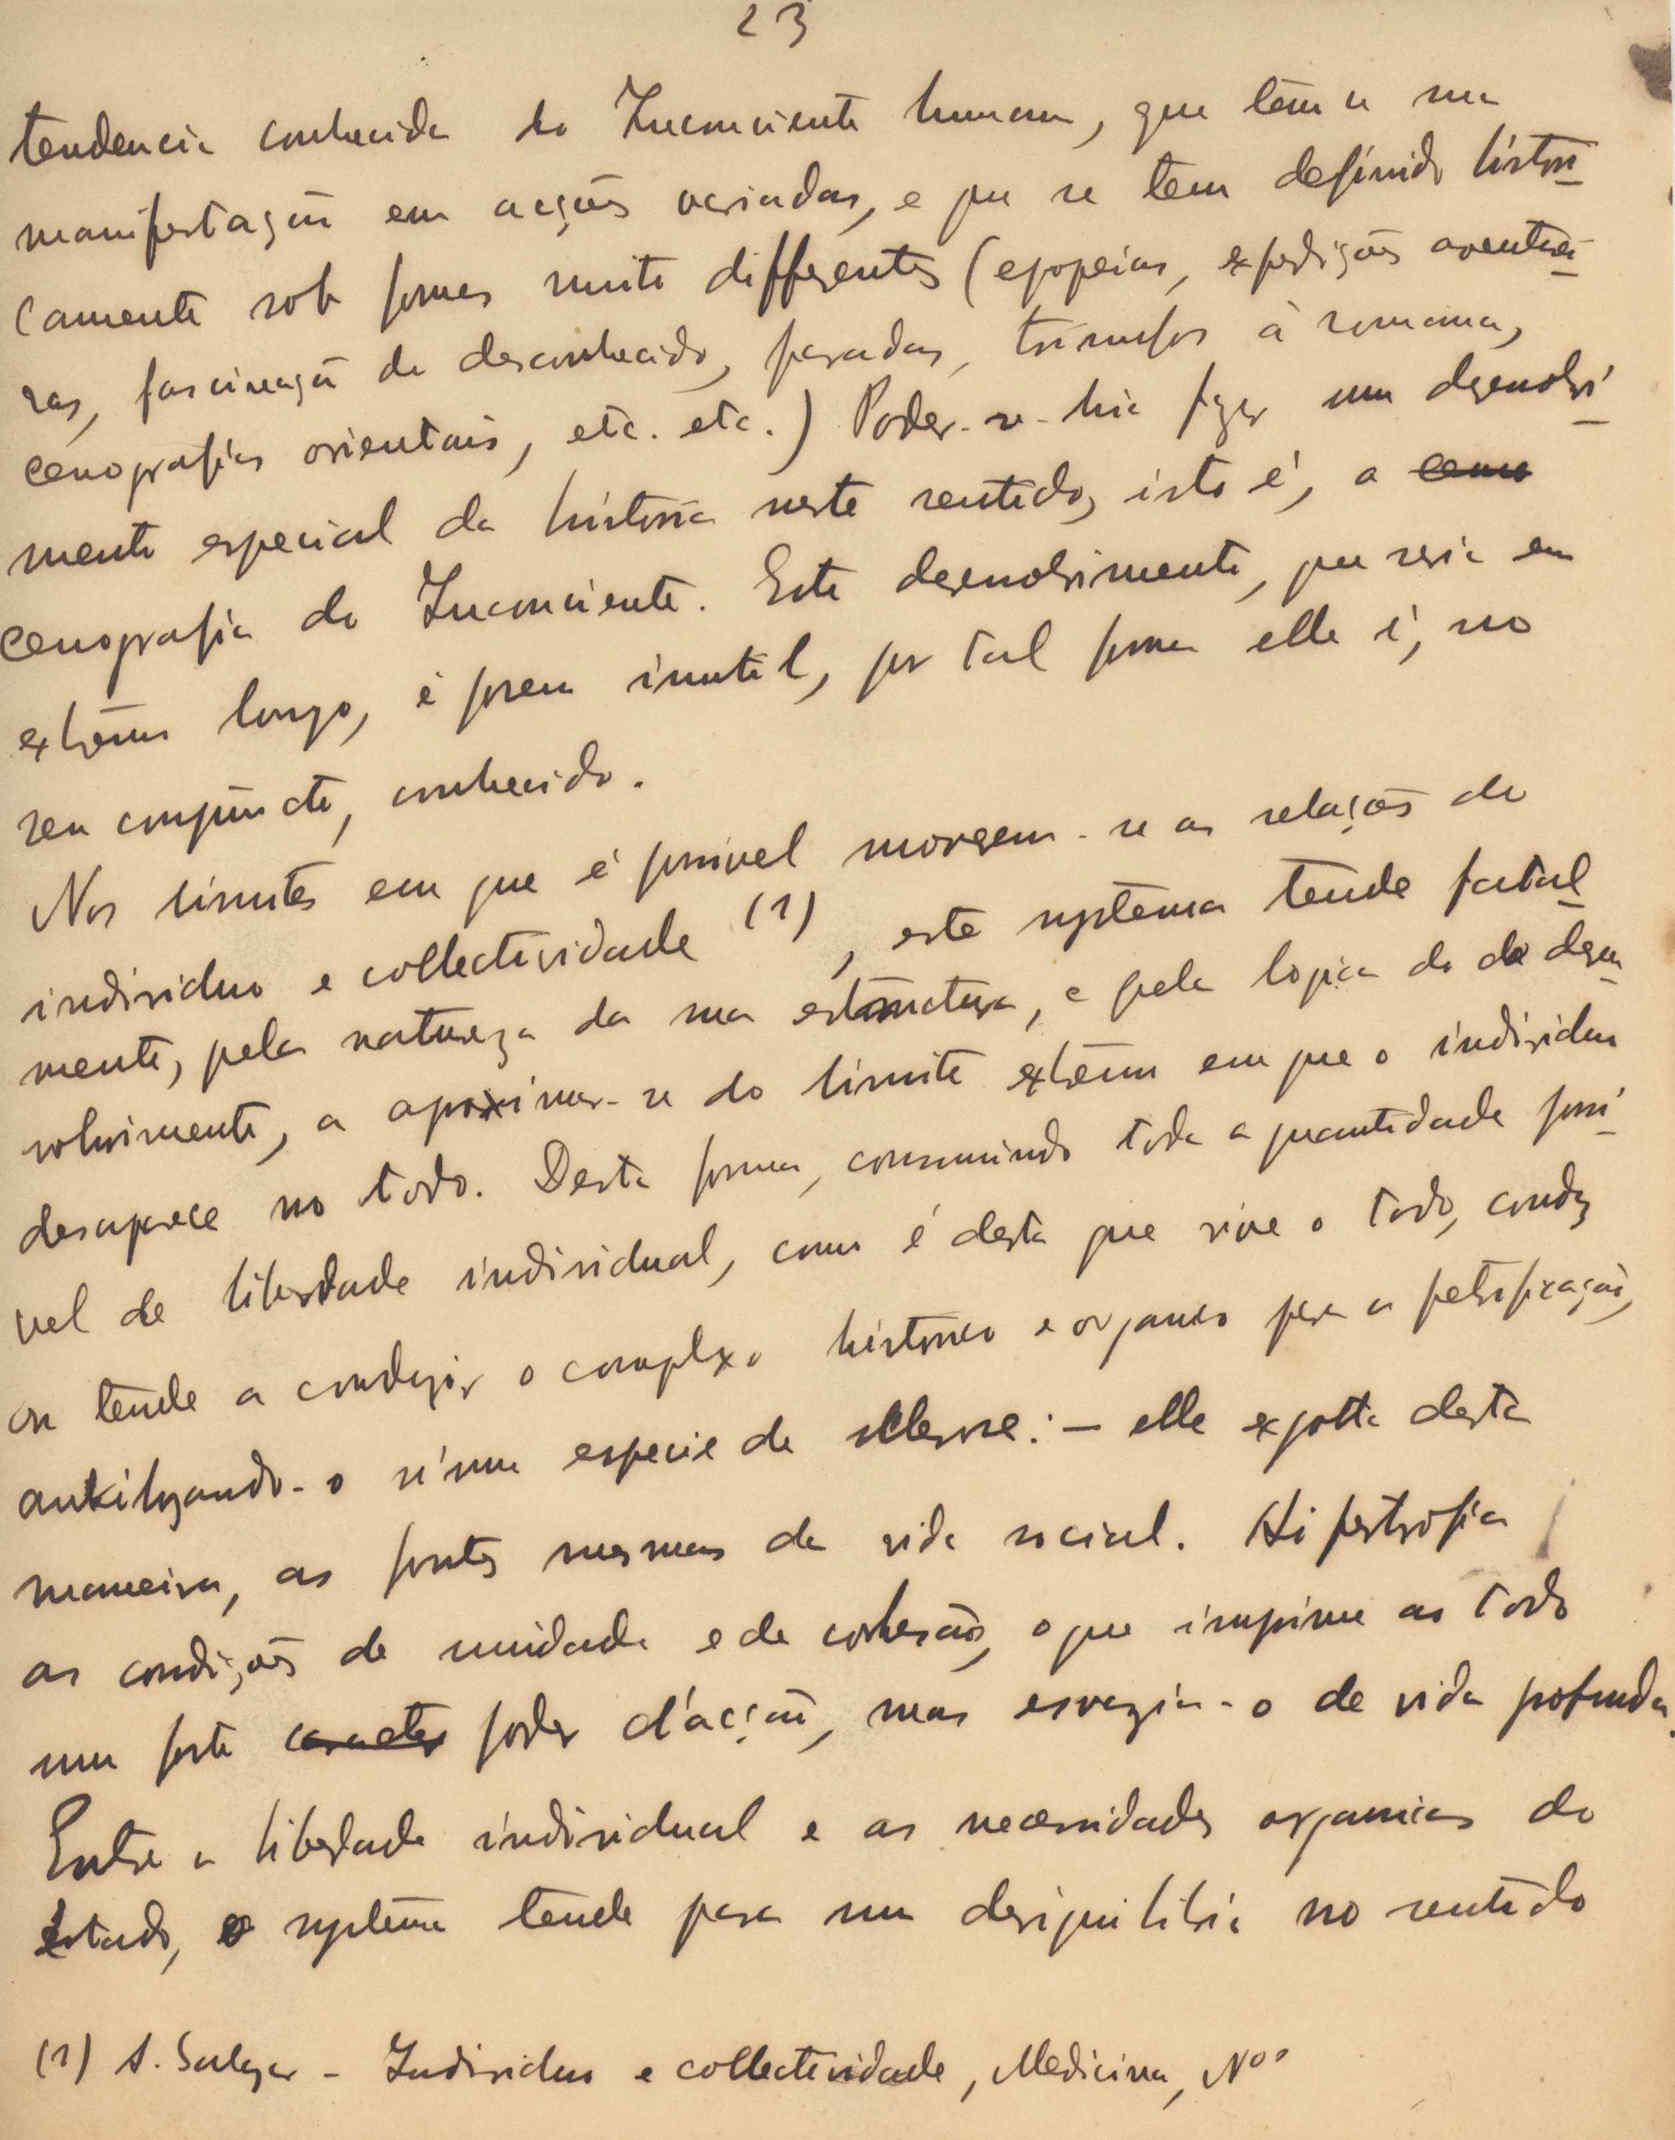 23
tendencia conhecida do Inconsciente humano, que tem a sua
manifestação em acções variadas, e que se tem definido histori-
camente sob formas muito differentes (epopeias, expedições aventurei-
ras, fascinação do desconhecido, paradas, triumfos à romana,
cenografias orientais, etc. etc.) Poder-se-hia fazer um desenvolvi-
mento especial da historia neste sentido, isto é, a ceno
cenografia do Inconsciente. Este desenvolvimento, que seria em
extremo longo, é porem inutil, por tal forma elle é, no
seu conjuncto, conhecido.
Nos limites em que é possivel moverem-se as relações do
individuo e collectividade (1), este systema tende fatal-
mente, pela natureza da sua estructura, e pela logica do do desen-
volvimento, a aproximar-se do limite extremo em que o individuo
desaparece no todo. Desta forma, consumindo toda a quantidade possi-
vel de liberdade individual, como é desta que vive o todo, conduz
ou tende a conduzir o complexo historico e organico para a petrificação,
ankilozando-o n'uma especie de sclerose: — elle exgotta desta
maneira, as fontes mesmas da vida social. Hipertrofia
as condições de unidade e de cohesão, o que imprime ao todo
um forte caracter poder d'acção, mas esvazia-o de vida profunda.
Entre a liberdade individual e as necessidades organicas do
Estado, o systema tende para um desiquilibrio no sentido
(1) A. Salazar - Individuo e collectividade, Medicina, Nos